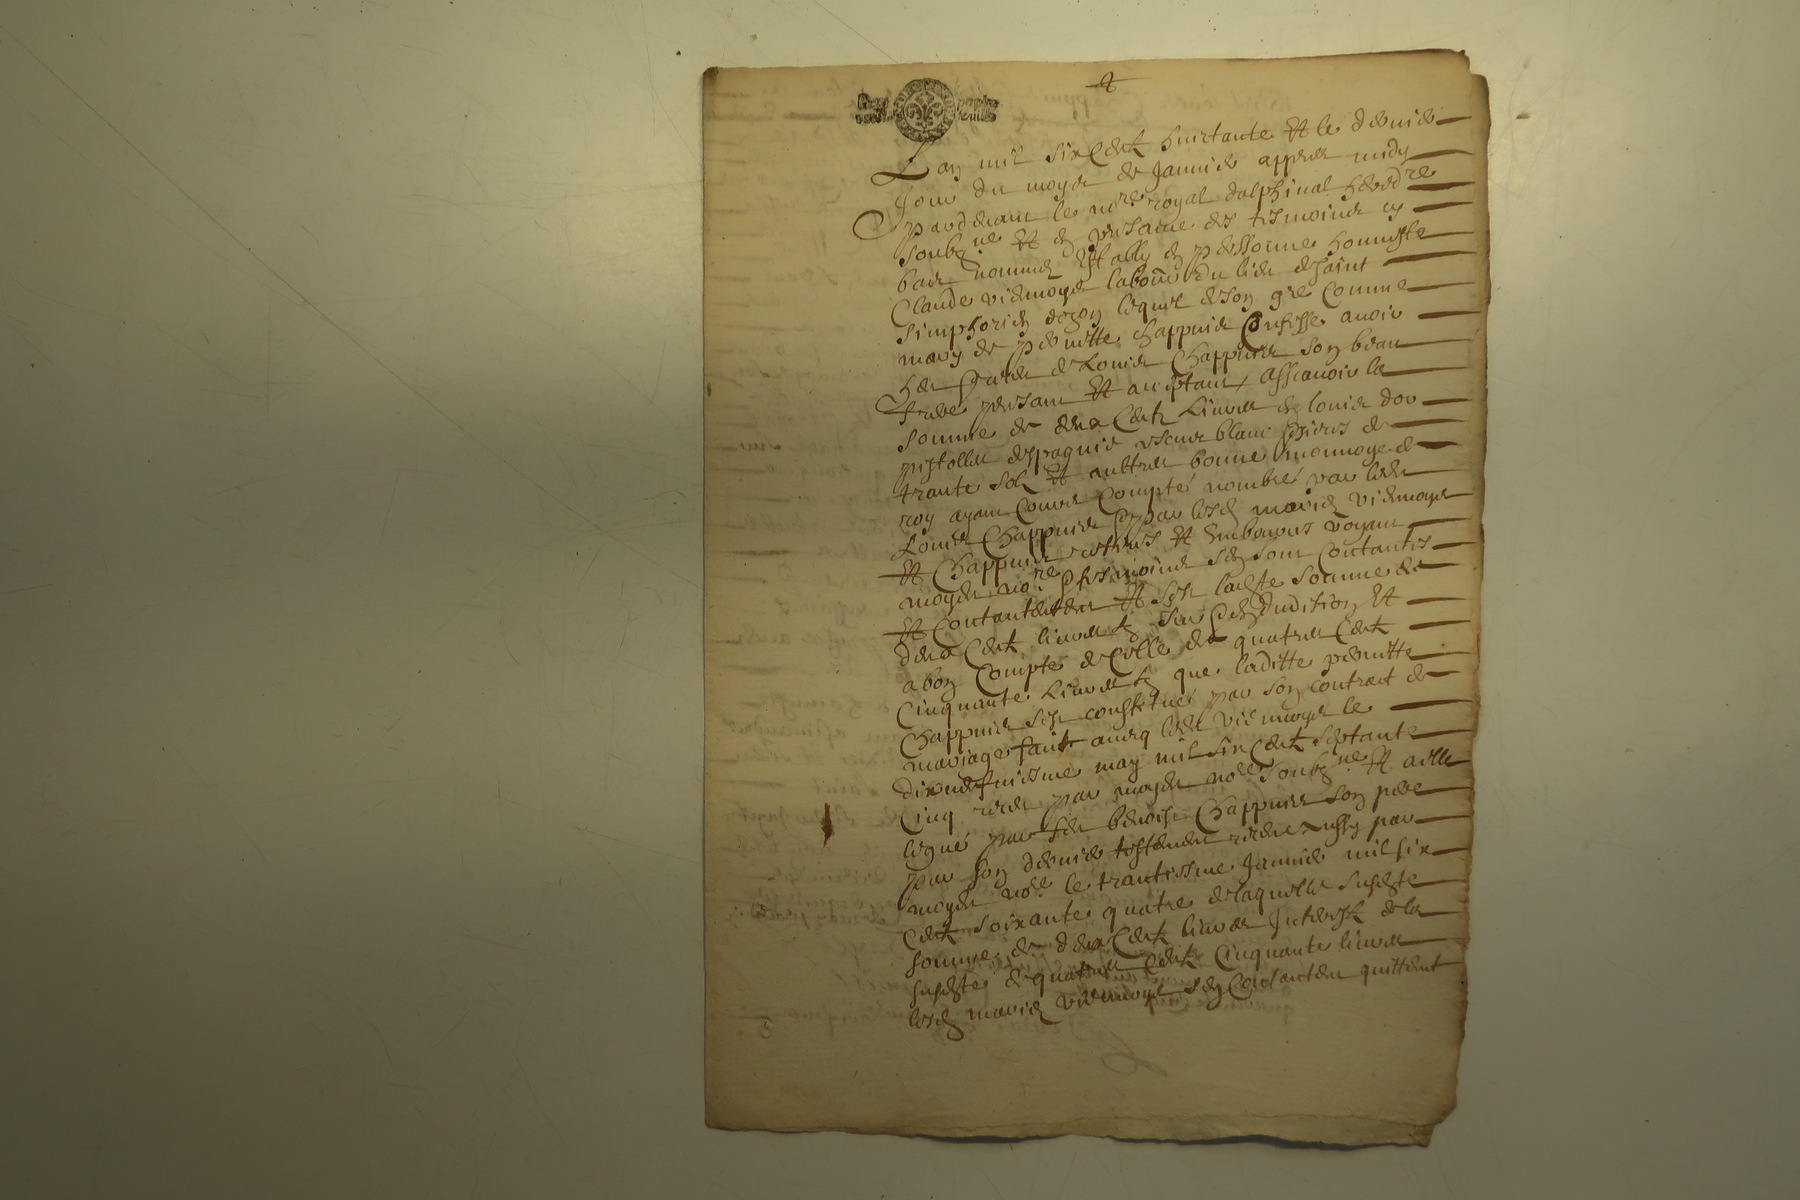 Lan mil six Centz huictante Et le dernier
Jour du moys de Janvier appres midy
pardevant le no.re royal dalphinal hered.re
soubz.ne Et en presance des tesmoings cy
bas nommez Estably en personne honneste
Claude viemoyd laboure.r du lieu de saint
simphorien dozon lequel de son gre Comme
mary de pernette Chappuis Confesse avoir
heu Et receu de Louis Chappuis son beau
frere present Et acceptant Assavoir la
somme de deux Centz Livres En louis dor
pistolles despagnie escus blanc pieces de
trante solz Et aultres bonne monnoye de
roy ayant Cours Compté nombré par ledit
Louis Chappuis Et par lesd mariez viemoyd
Et Chappuis retirés Et Emboursés voyant
moydit no.re Et tesmoins sen sont Contantés
Et Contantent Et Est ladite somme de
deux Centz livres tz sur Et En dudition Et
a bon Compte de Celle de quatre Centz
Cinquante Livres tz que laditte pernette
Chappuis sest constitué par son contract de
mariage faict avecq ledit viemoyd le
dixneufviesme may mil six Centz septante
Cinq receu par moydit no.re soubz.ne Et a elle
legué par feu benoist Chappuis son pere
par son dernier testement receu aussy par
moydit no.re le trantiesme Janvier mil six
Centz soixante quatre de laquelle susdite
somme de deux Centz livres Interestz de la
susdite de quatre Centz Cinquante livres
lesd mariez viemoyd sen Contantent quittent